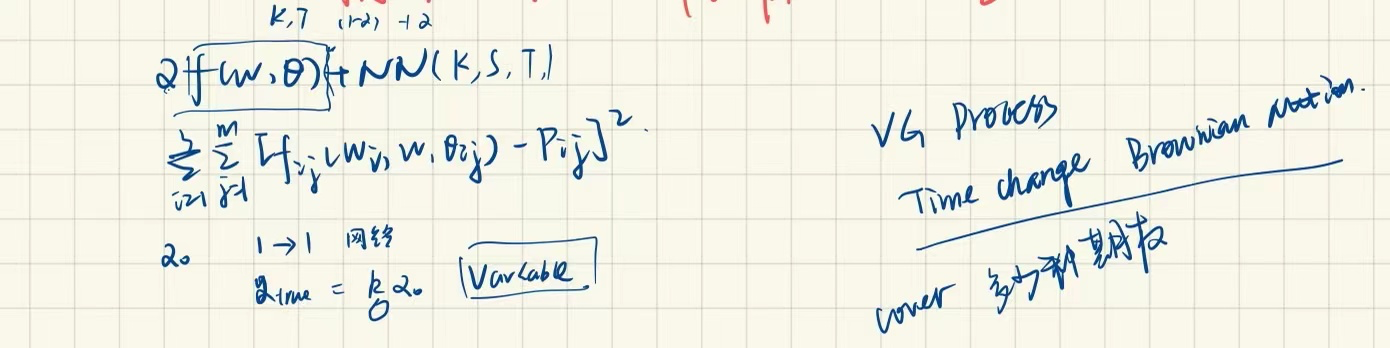 K,T (1-α) → α
α f(w,θ) + NN(K,S,T,)
∑ᵢ₌₁ ∑ⱼ₌₁ᵐ [f_ij(w_i, w, θ_ij) - P_ij]²
α₀ 1→1 网络
α_true = k α₀ Variable
VG Process
Time change Brownian Motion.
cover 多少种期权